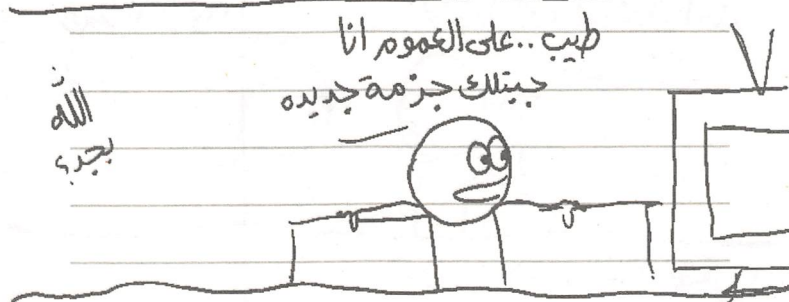 طيب..على العموم انا
جبتلك جزمة جديده
الله
بجد؟